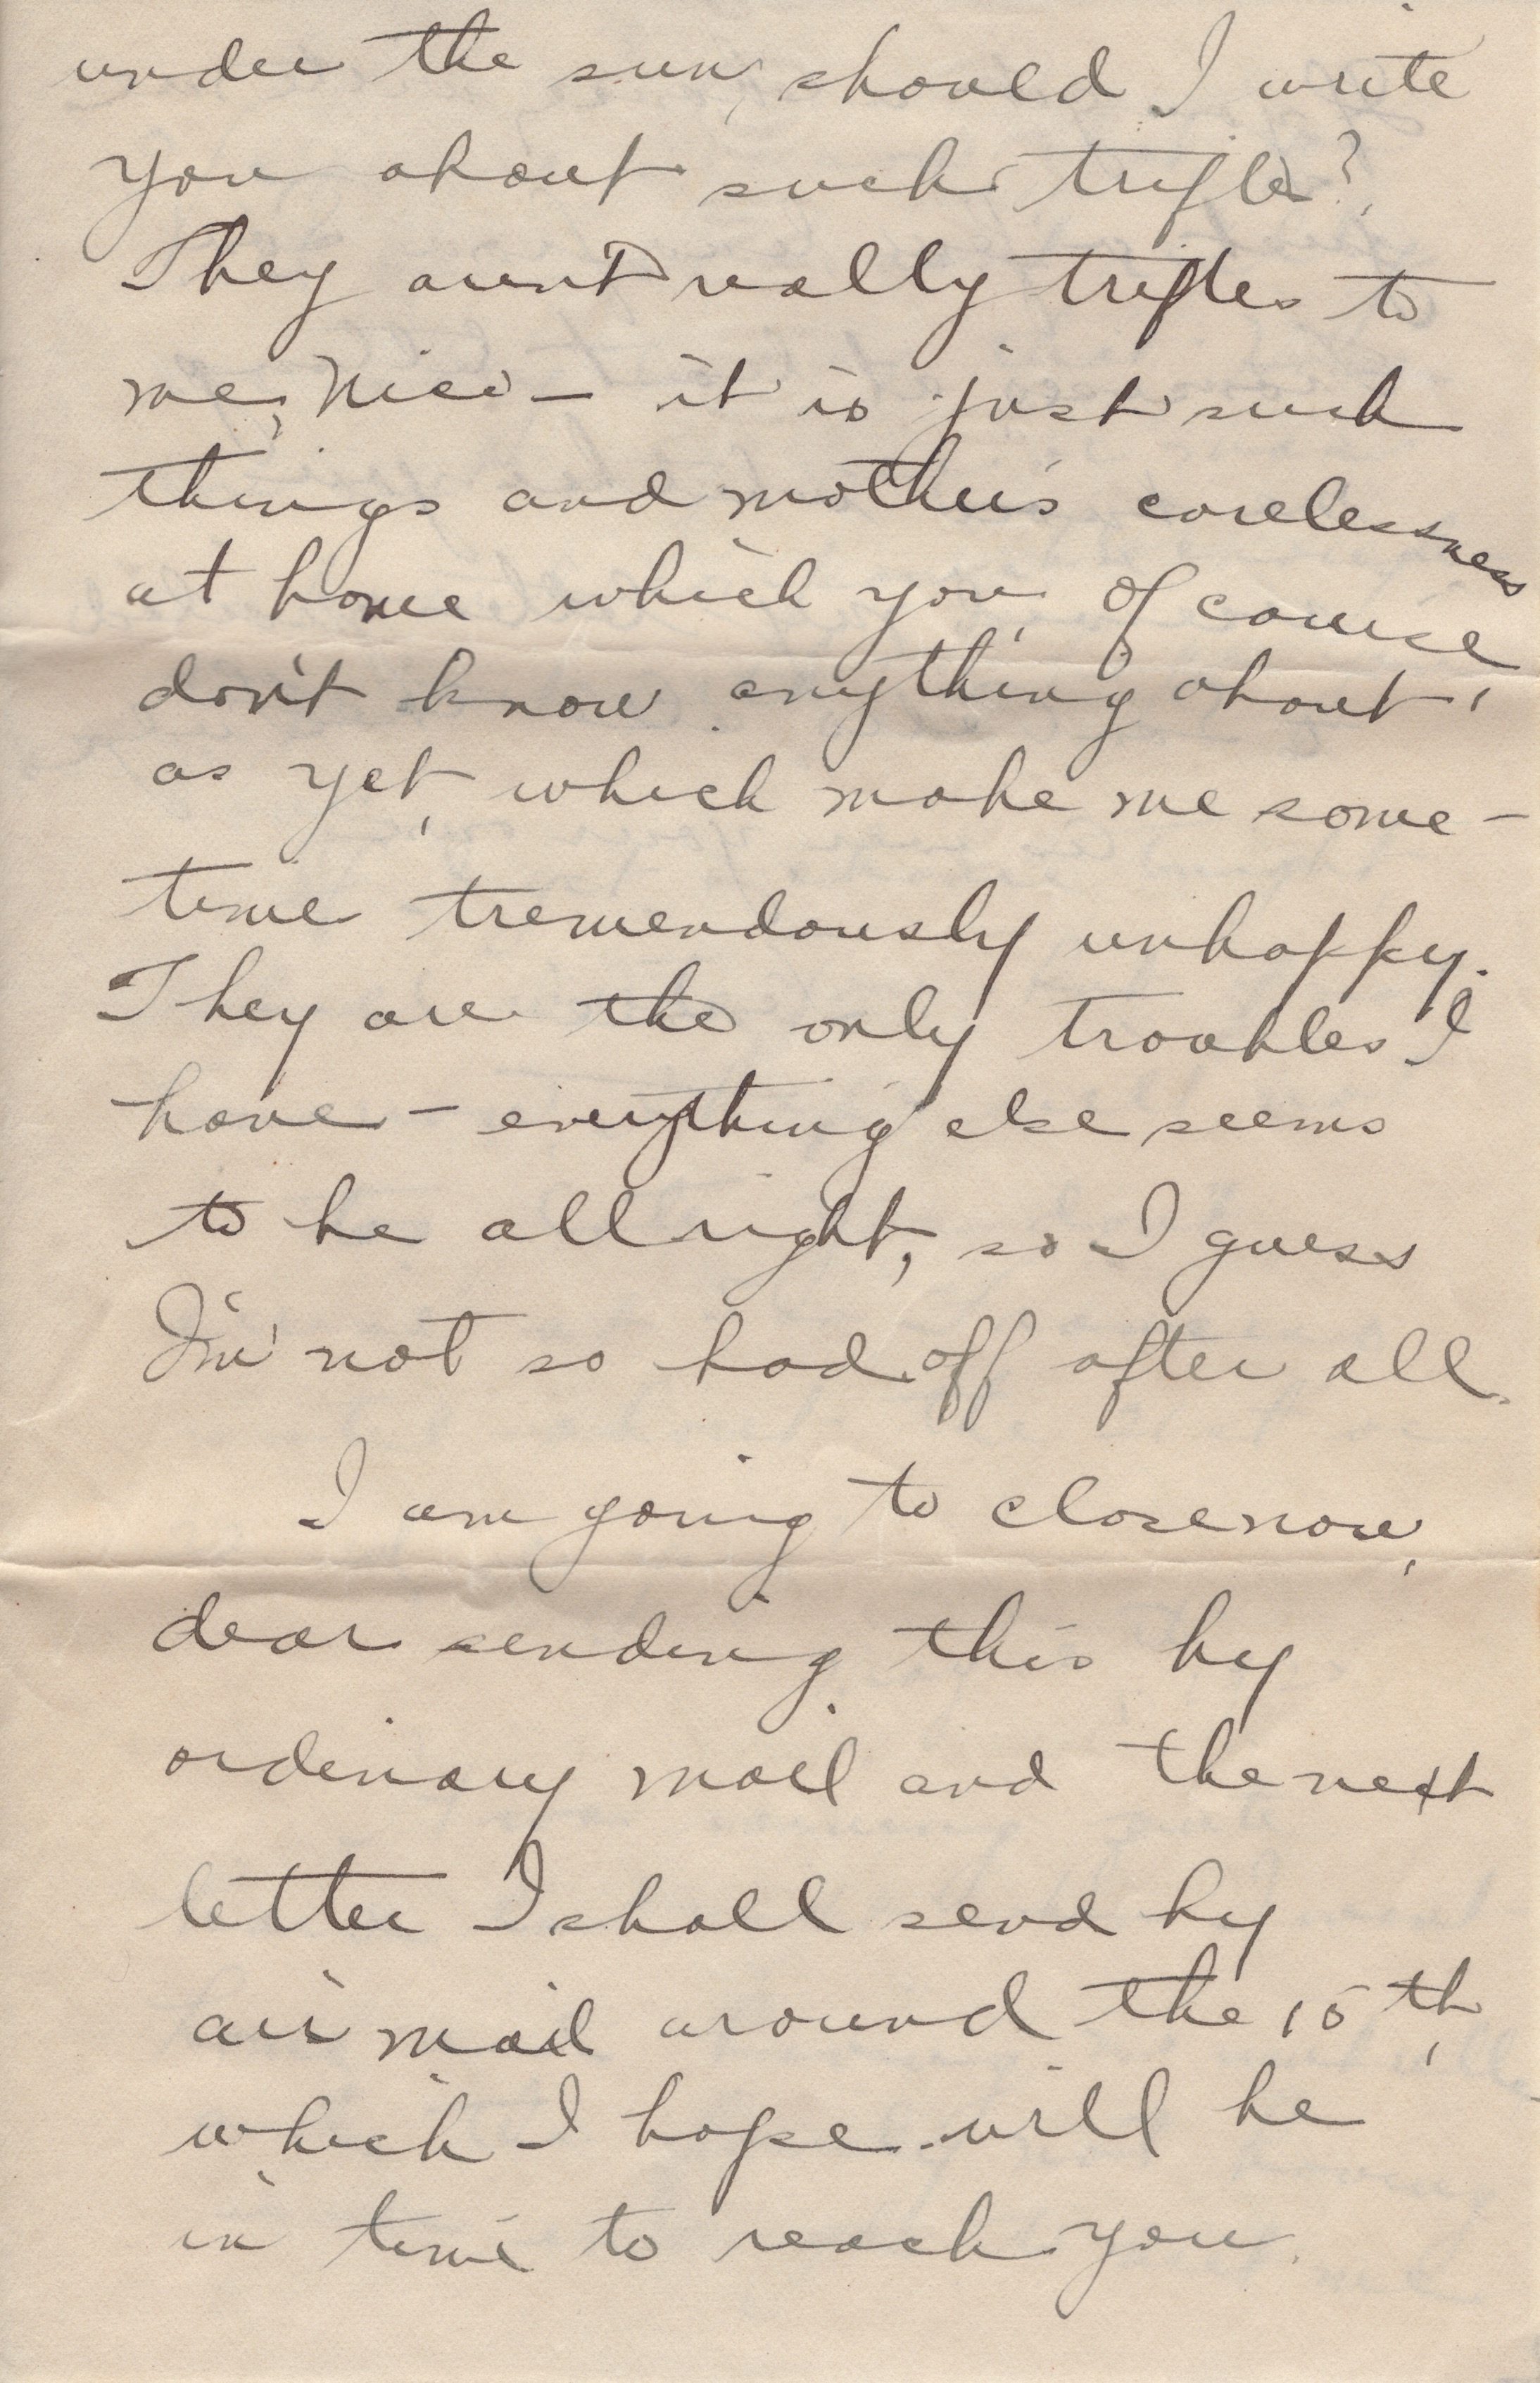 under the sun, should I write
you about such trifles?
They aren't really trifles to
me, Nico – it is just such
things and mother's carelessness
at home which you, of course
don't know anything about,
as yet, which make me some-
time tremendously unhappy.
They are the only troubles I
have – everything else seems
to be all right, so I guess
I'm not so bad off after all.
I am going to close now,
dear sending this by
ordinary mail and the next
letter I shall send by
air mail around the 15th,
which I hope will be
in time to reach you.